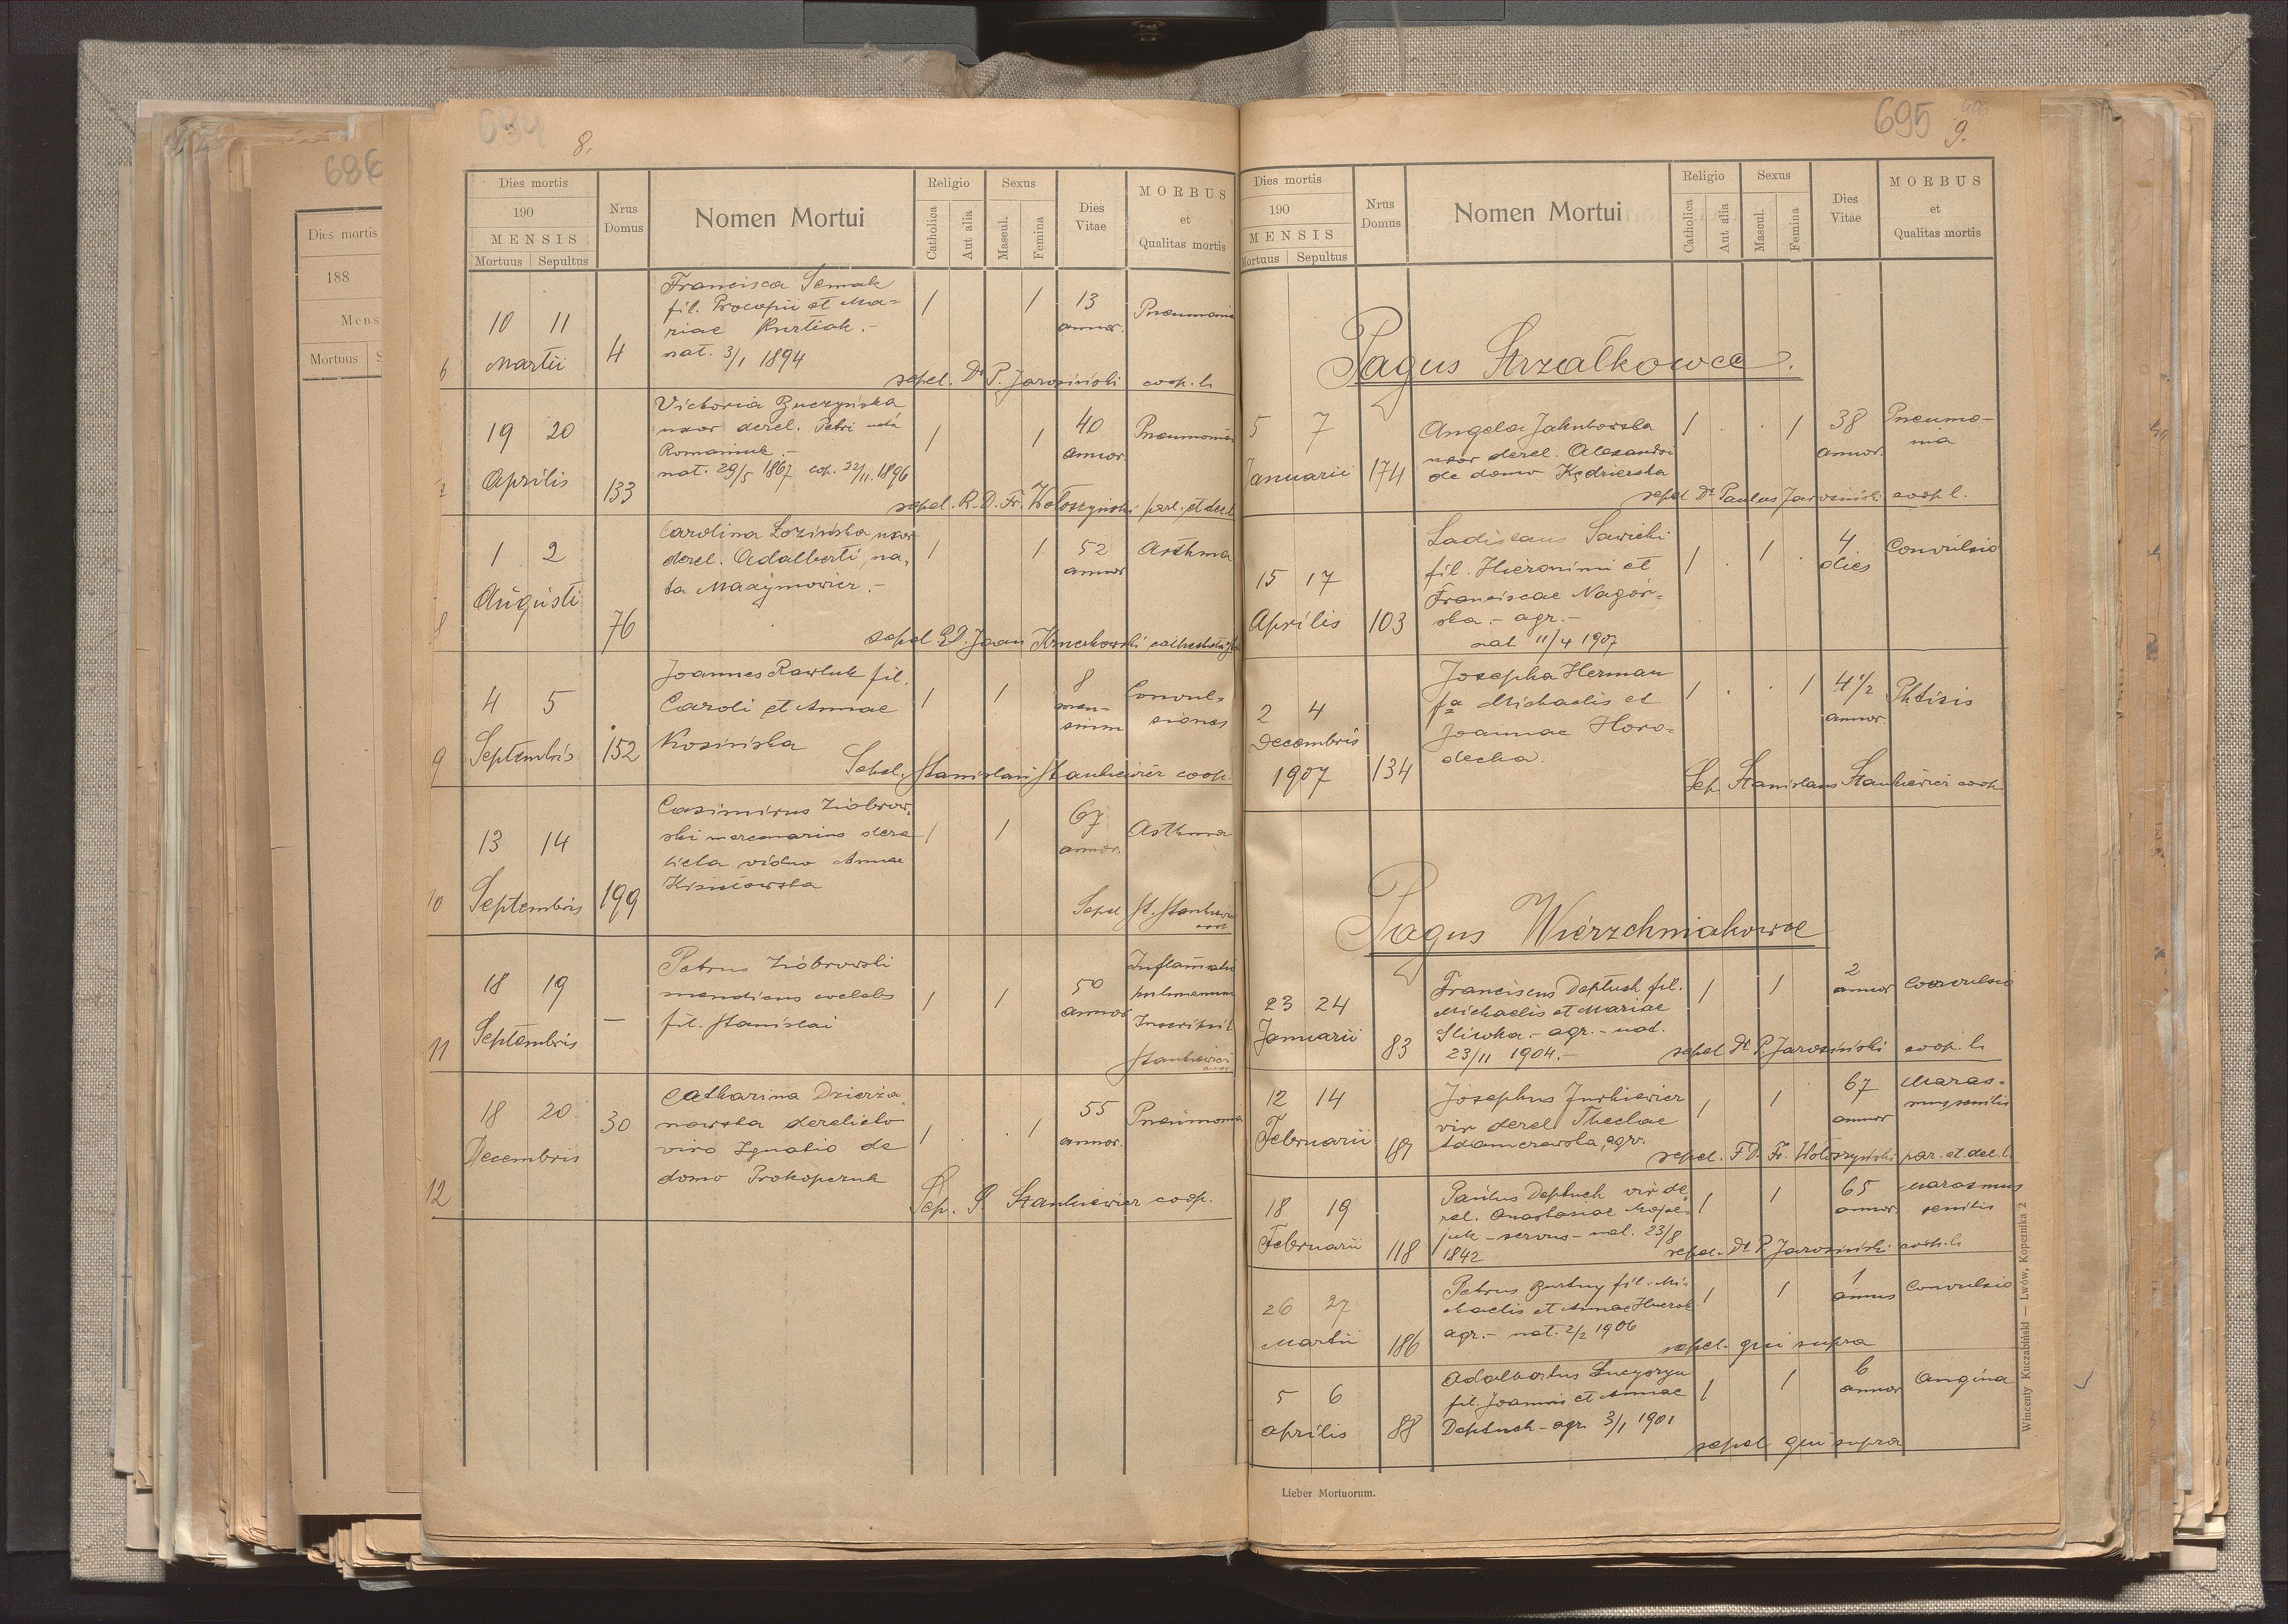 686
Dies mortis
188
Mens
Mortuus S
694
8.
Dies mortis
190
MENSIS
Mortuus Sepultus
Nrus Domus
Nomen Mortui
Religio
Catholica
Aut alia
Sexus
Mascul.
Femina
Dies Vitae
MORBUS
et
Qualitas mortis
6
10 11
Martii
4
Francisca Semak
fil. Procopii et Ma=
riae Kurtiak.-
nat. 3/1 1894
1 1
13
annor.
Pneumonia
sepel. Dr P. Jarosiński coop. l.
7
19 20
Aprilis
133
Victoria Buczyńska
uxor derel. Petri
Romaniuk.-
nat. 29/5 1867 cop. 22/11. 1896
1 1
40
annor
Pneumonia
sepel. R. D. Fr. Wołoszyński par. et dec. l.
8
1 2
Augusti
76
Carolina Łozińska uxor
derel. Adalberti, na,
ta Maxymowicz.-
1 1
52
annor
Asthma
sepel R.D. Joan
9
4 5
Septembris
152
Joannes Rawluk fil.
Caroli et Annae
Kosińska
1 1
8
men-
sium
Convul=
siones
Sepel. Stanislaus Stankiewicz coop.
10
13 14
Septembris
199
Casimirus Ziobrow,
ski mercenarius dere
licta vidua Annae
1 1
67
annor.
Asthma
Sepel St. Stankiewicz
coop
11
18 19
Septembris
—
Petrus Ziobrowski
mendicus coelebs
fil. Stanislai
1 1
50
annor
Inflamatio
pulmonum
Inscripsit
Stankiewicz
coop
12
18 20
Decembris
30
Catharina Dzierża,
nowska derelicto
viro Ignatio de
domo Prokopczuk
1 . . 1
55
annor.
Pneumonia
Sep. S. Stankiewicz coop.
695
9.
Dies mortis
190
MENSIS
Mortuus Sepultus
Nrus Domus
Nomen Mortui
Religio
Catholica
Aut alia
Sexus
Mascul.
Femina
Dies Vitae
MORBUS
et
Qualitas mortis
Pagus Strzałkowce.
5 7
Januarii
174
Angela Jakubowska
uxor derel. Alexandri
de domo Kędzierska
1 . . 1
38
annor.
Pneumo-
nia
sepel Dr Paulus Jarosiński coop l.
15 17
Aprilis
103
Ladislaus Sawicki
fil. Hieronimi et
Franciscae Nagór=
ska.- agr.-
nat 11/4 1907
1 . 1 .
4
dies
Convulsio
2 4
Decembris
1907
134
Josepha Herman
fa Michaelis et
Joannae Horo=
decka.
1 . . 1
4 1/2
annor.
Phtisis
Sep Stanislaus Stankiewicz coop
Pagus Wierzchniakowce
23 24
Januarii
83
Franciscus Deptuch fil.
Michaelis et Mariae
Sliwka.- agr.- nat.
23/11 1904.-
1 1
2
annor
Convulsio
sepel Dr P. Jarosiński coop. l.
12 14
Februarii
187
Josephus Jurkiewicz
vir derel Theclae
Adamczewska, agr.
1 1
67
annor
Maras-
mus senilis
sepel. Fr. Wołoszyński par. et dec. l
18 19
Februarii
118
Paulus Deptuch vir de,
rel. Anastasiae
juk - servus - nat. 23/8
1842
1 1
65
annor.
Marasmus
senilis
sepel. Dr P. Jarosiński coop. l.
26 27
Martii
186
Petrus Burtny fil. Mi=
chaelis et Annae
agr.- nat. 2/2 1906
1 1
1
annus
Convulsio
sepel. qui supra
5 6
Aprilis
88
Adalbertus
fil. Joannis et Annae
Deptuch - agr. 3/1 1901
1 1
6
annor
Angina
sepel qui supra
Lieber Mortuorum.
Wincenty Kuczabiński — Lwów, Kopernika 2